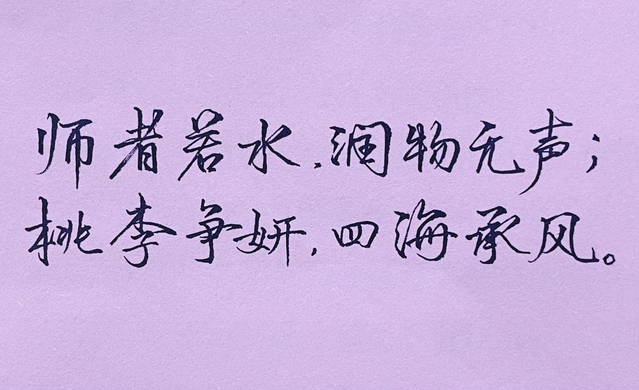 师者若水,润物无声;
桃李争妍,四海承风。